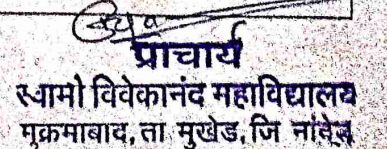 प्राचार्य
स्वामी विवेकानंद महाविद्यालय
मुक्रमाबाद, ता मुखेड, जि नांदेड